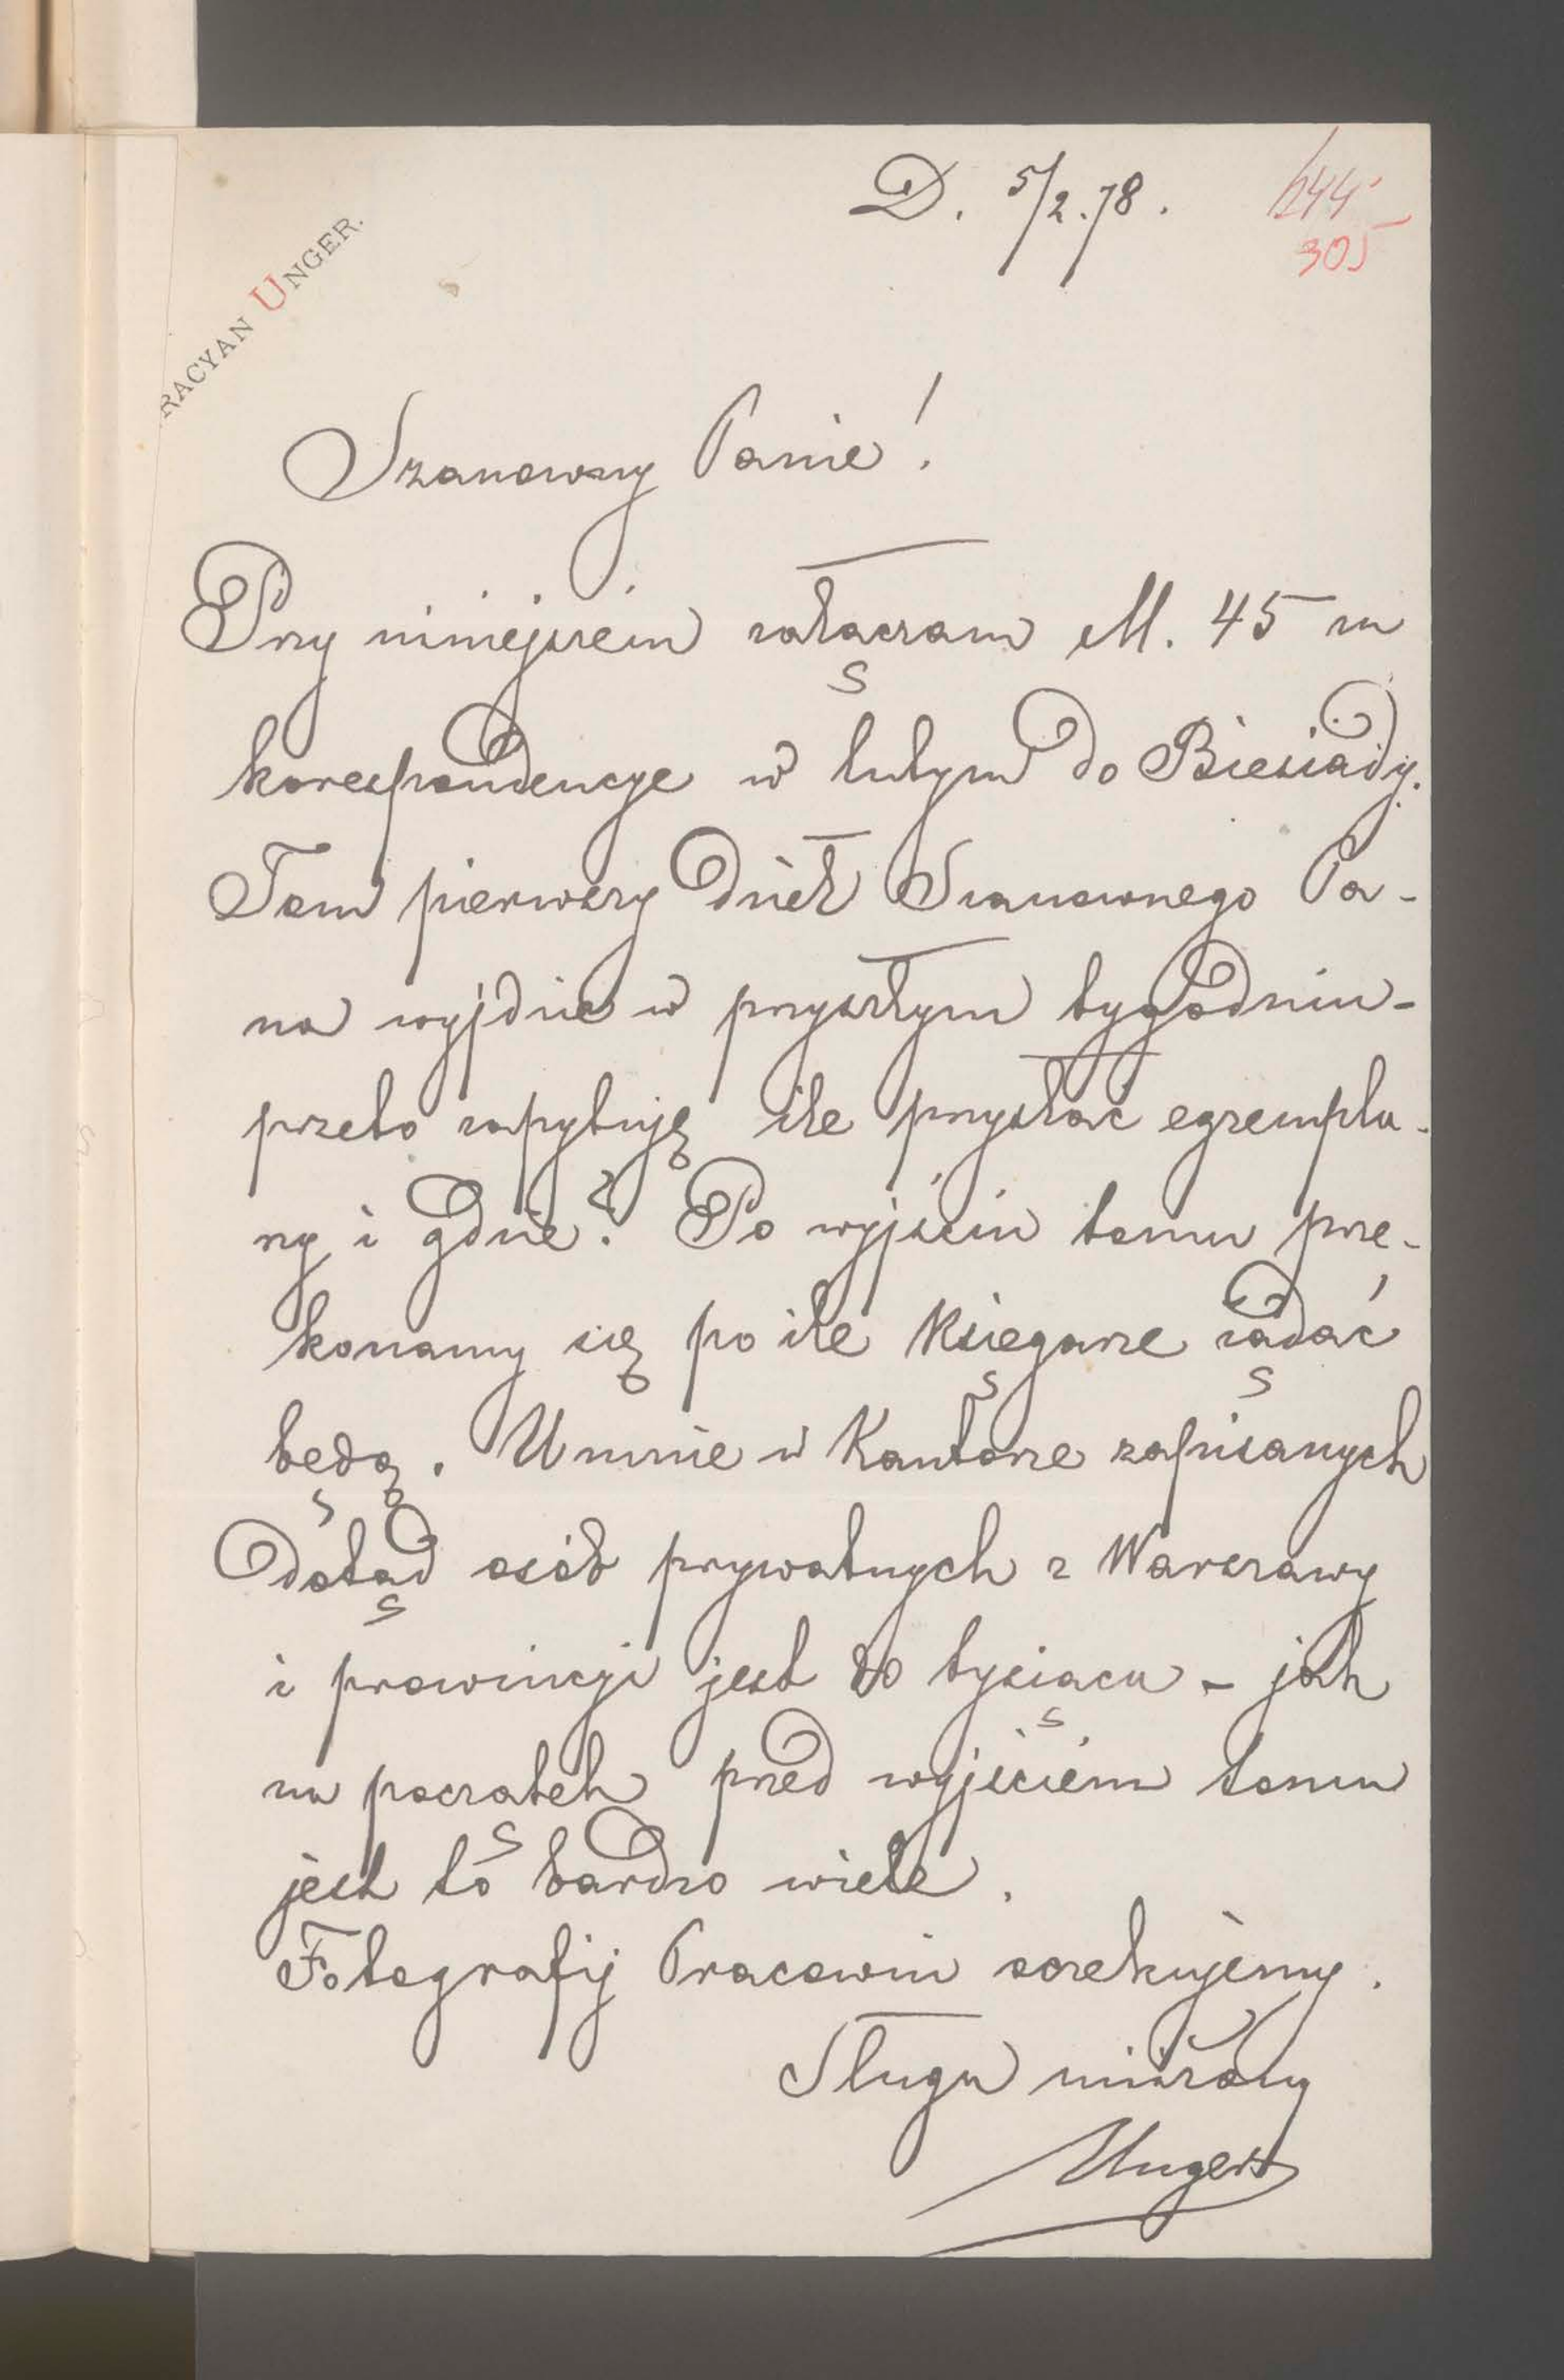 D. 5/2.78.
244
305
RACYAN UNGER.
Szanowny Panie!
Przy niniejszem załączam M. 45 za
korespondencye w lutym do Biesiady.
Tom pierwszy dzieł Szanownego Pa-
na wyjdzie w przyszłym tygodniu -
przeto zapytuję ile przysłać egzempla-
rzy i gdzie? Po wyjściu tomu prze-
konamy się po ile Księgarze żądać
będą. U mnie w Kantorze zapisanych
dotąd osób prywatnych z Warszawy
i prowincyi jest do tysiąca - jak
na początek przed wyjściem tomu
jest to bardzo wiele.
Fotografij Pracowni oczekujemy.
Sługa uniżony
Unger